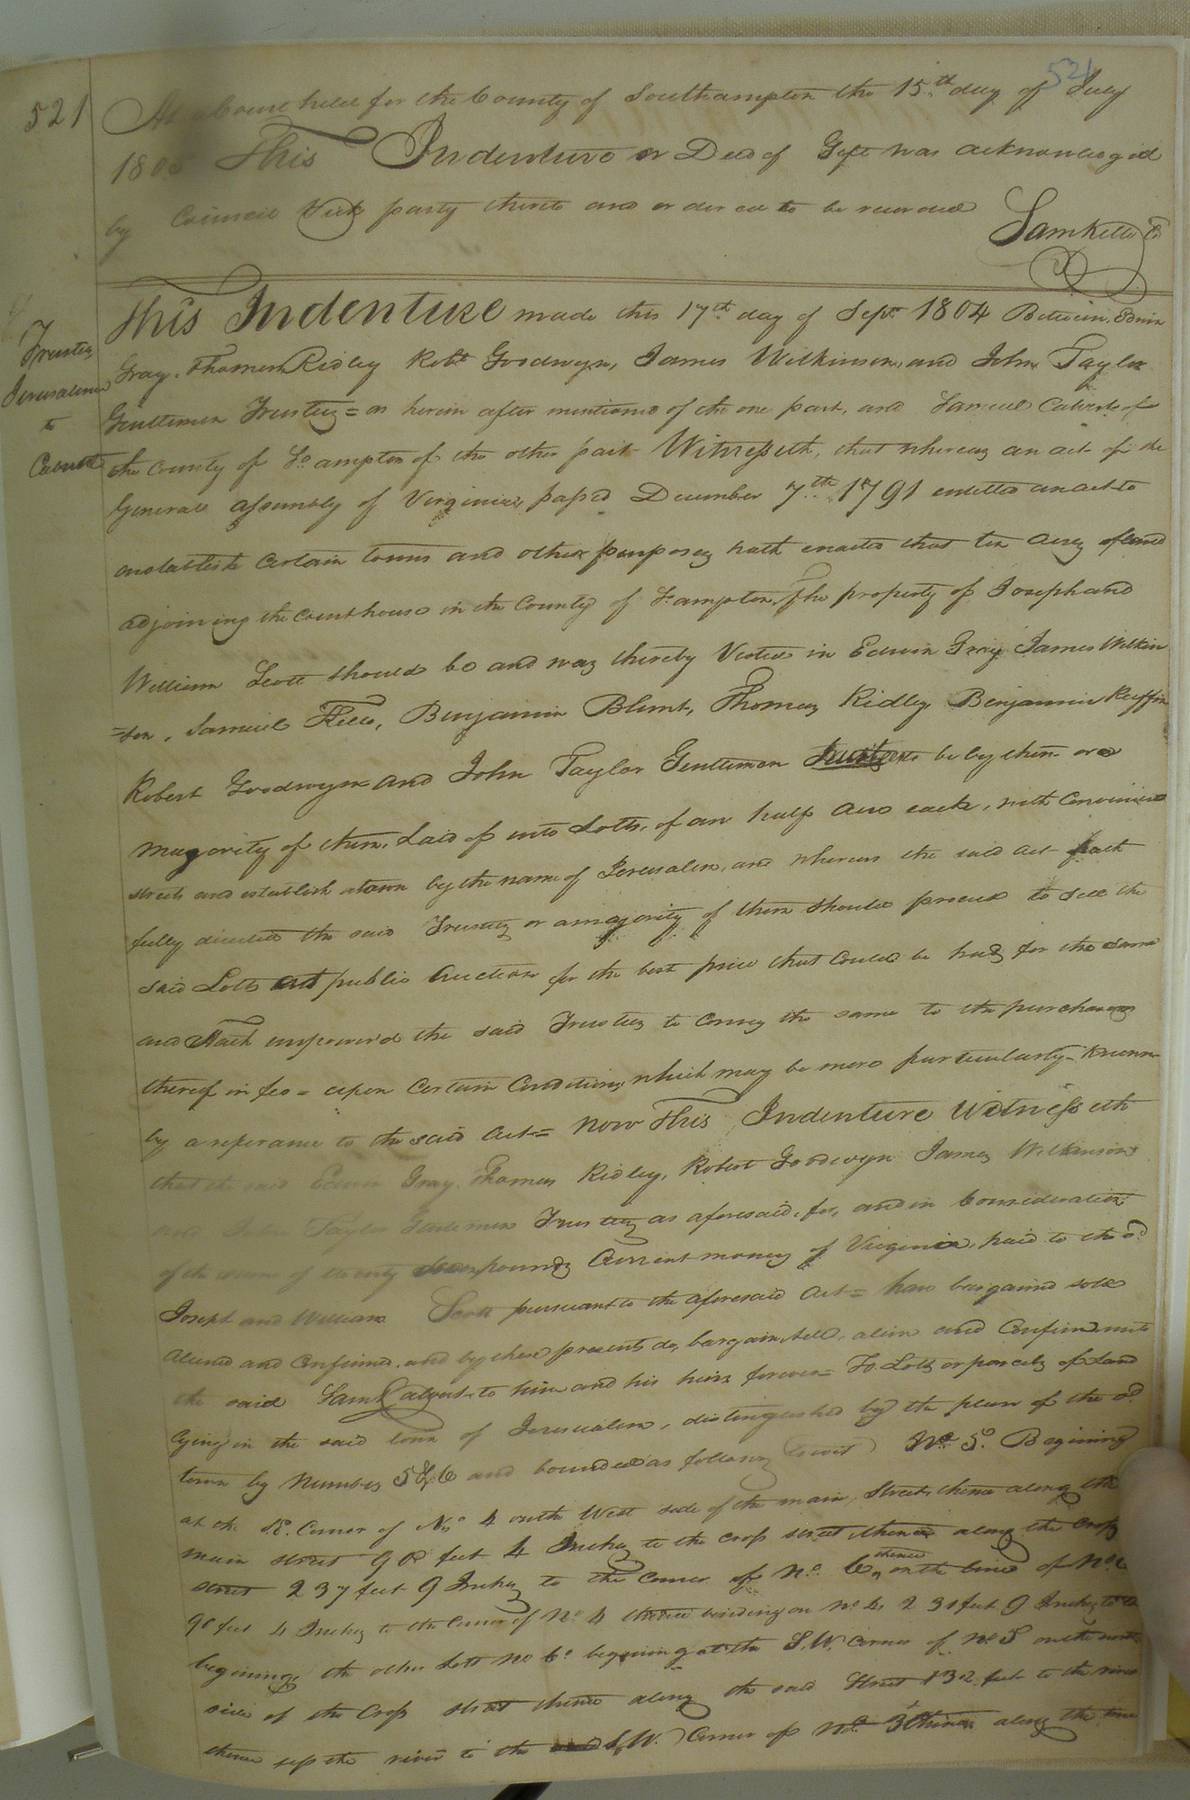 521
521
At a Court held for the County of Southampton the 15th day of July
1805 This Indenture or Deed of Gift was acknowledged
by Council Vick party thereto and ordered to be recorded
Sam Kello Cl
Trustees
Jerusalem
to
Calvert
This Indenture made this 17th day of Sepr 1804 Between Edwin
Gray, Thomas Ridley Robt Goodwyn, James Wilkinson, and John Taylor
Gentlemen Trustees = as herein after mentioned of the one part, and Samuel Calvert of
the County of So ampton of the other part Witnesseth, that whereas an act of the
General assembly of Virginia, passed December 7th 1791 entitled an act to
establish certain towns and other purposes hath enacted that ten acres of land
adjoining the Courthouse in the County of So ampton, The property of Joseph and
William Scott should be and was thereby Vested in Edwin Gray James Wilkin
=son, Samuel Kello, Benjamin Blunt, Thomas Ridley Benjamin Ruffin
Robert Goodwyn and John Taylor Gentlemen Trustees to be by them or a
majority of them, Laid off into Lotts, of an half acre each, with Convenient
streets and establish a town by the name of Jerusalem, and whereas the said act hath
fully directed the said Trustees or a majority of them should proceed to sell the
said Lotts at public auction for the best price that could be had for the same
and Hath impowered the said Trustees to Convey the same to the purchasers
thereof in fee = upon Certain Conditions, which may be more particularly known
by a referance to the said Act = Now This Indenture Witnesseth
that the said Edwin Gray, Thomas Ridley, Robert Goodwyn James Wilkinson
and John Taylor Gentlemen Trustees as aforesaid, for, and in Consideration
of the sum of twenty pounds Current money of Virginia, paid to the sd
Joseph and William Scott pursuant to the aforesaid Act = have bargained sold
aliened and Confirmed, and by these presents do, bargain, sell, alien and Confirm unto
the said Saml Calvert to him and his heirs forever = To Lotts or parcels of Land
lying in the said town of Jerusalem, distinguished by the plan of the sd
town by Numbers 5 & 6 and bounded as follows (to wit) No 5. Begining
at the SE. Corner of No 4 on the West side of the main Street, thence along the
main street 90 feet 4 Inches to the cross street, thence along the Cross
street 237 feet 9 Inches to the corner of No. 6, thence on the line of No 6
90 feet 4 Inches to the Corner of No 4 thence binding on No 4, 230 feet 9 Inches to the
begining, the other Lott No 6. begining at the S.W. corner of No 5 on the north
side of the Cross street thence along the said Street 132 feet to the river
thence up the river to the S.W. Corner of No. 3 thence along the line